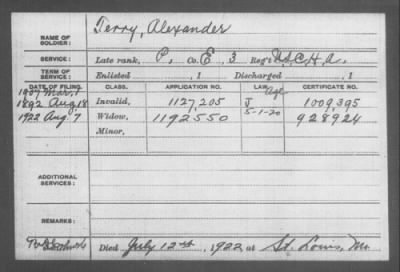 NAME OF SOLDIER: Terry, Alexander
SERVICE: Late rank, P, Co. E, 3 Reg't U.S.C.H.A.
TERM OF SERVICE: Enlisted , 1 Discharged , 1
DATE OF FILING. CLASS. APPLICATION NO. LAW. CERTIFICATE NO.
Age
1892 Aug 18 Invalid, 1127,205 J 1009,395
1922 Aug 7 Widow, 1192550 5-1-20 928924
Minor,
ADDITIONAL SERVICES:
REMARKS:
Died July 12th, 1922 at St. Louis, Mo.